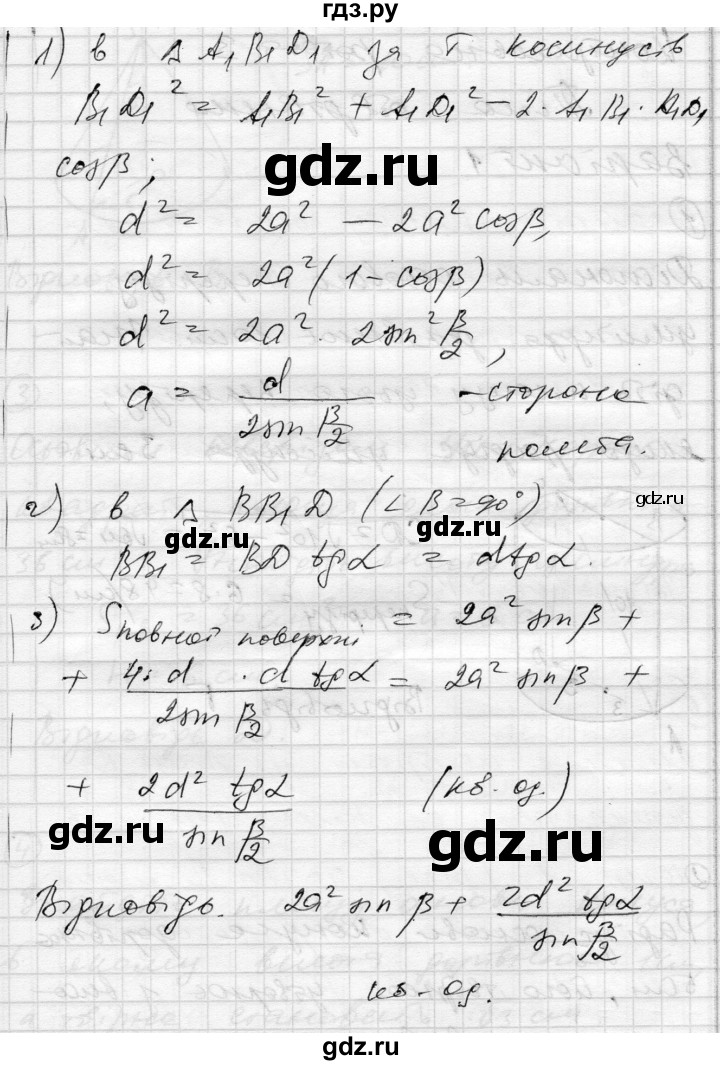 гдз.ру
1) в △ A₁B₁D₁ за Т косинусів
B₁D₁² = A₁B₁² + A₁D₁² - 2 · A₁B₁ · A₁D₁
cosβ;
gdz.ru
d² = 2a² - 2a² cosβ,
d² = 2a² (1 - cosβ)
d² = 2a² · 2sin² β/2,
a = d / 2sin β/2 - сторона
ромба.
gdz.ru
2) в △ BB₁D (∠B = 90°)
gdz.ru
BB₁ = BD tgα = d tgα.
3) Sповної поверхні = 2a² sinβ +
+ 4 · d · d tgα / 2sin β/2 = 2a² sinβ +
+ 2d² tgα / sin β/2 (кв. од.)
gdz.ru
gdz.ru
Відповідь. 2a² sinβ + 2d² tgα / sin β/2
кв. од.
gdz.ru